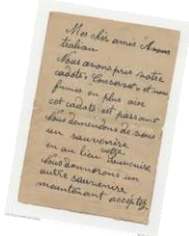 Mes chèr amis Aus
tralian
Nous avons pris votre
cadots "Conserves" et nous
fumes en plus aise
cet cadots et passant
Nous demendons de vous
un sauvenire
en au lien
Nous donnerons un
autre sauvenire
maintenant acceptez